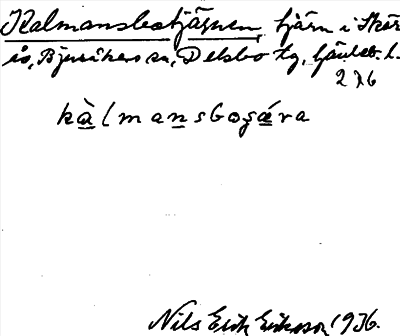 Kalmansbotjärnen, tjärn i Skär-
ås, Bjuråkers sn, Delsbo tg, Gävleb. l.
276
kàlmansboşǽra
Nils Erik Eriksson 1936.